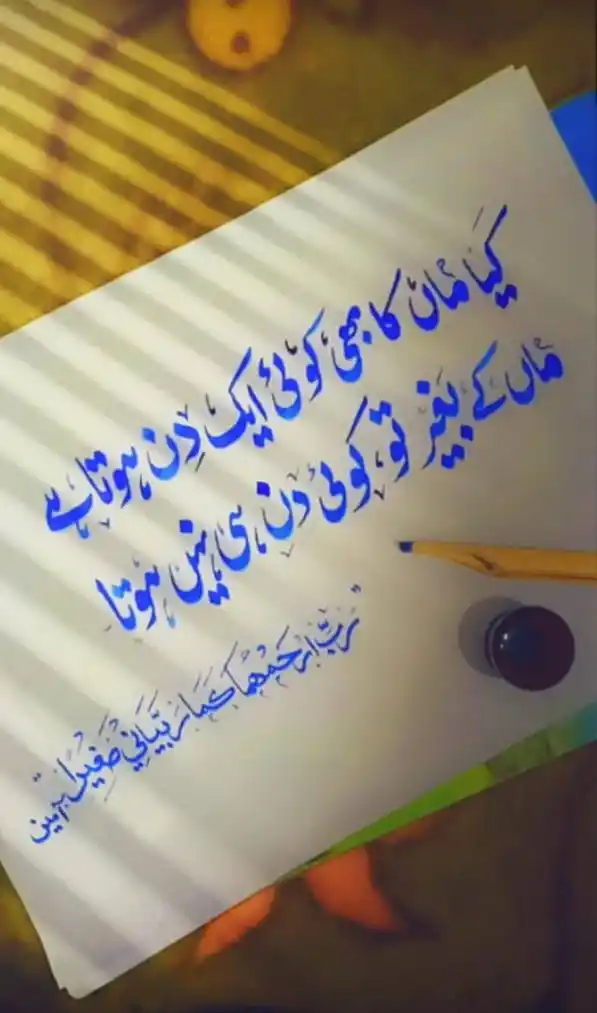 کیا ماں کا بھی کوئی ایک دن ہوتا ہے
ماں کے بغیر تو کوئی دن ہی نہیں ہوتا
"رَبِّ ارْحَمْهُمَا كَمَا رَبَّيَانِي صَغِيرًا" آمین